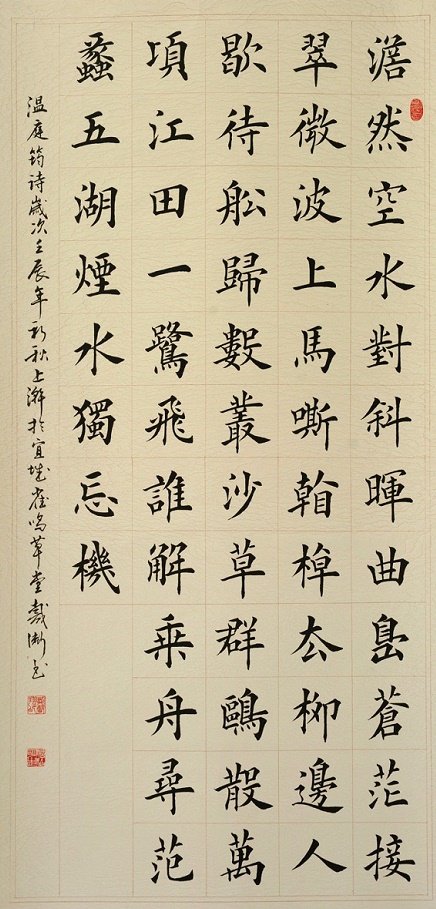 澹然空水對斜暉曲島蒼茫接
翠微波上馬嘶看棹厺柳邊人
歇待舩歸數叢沙草群鷗散萬
項江田一鷺飛誰解乗舟尋范
蠡五湖煙水獨忘機
温庭筠詩歲次壬辰年初秋上澣於宜城雀鳴草堂戴